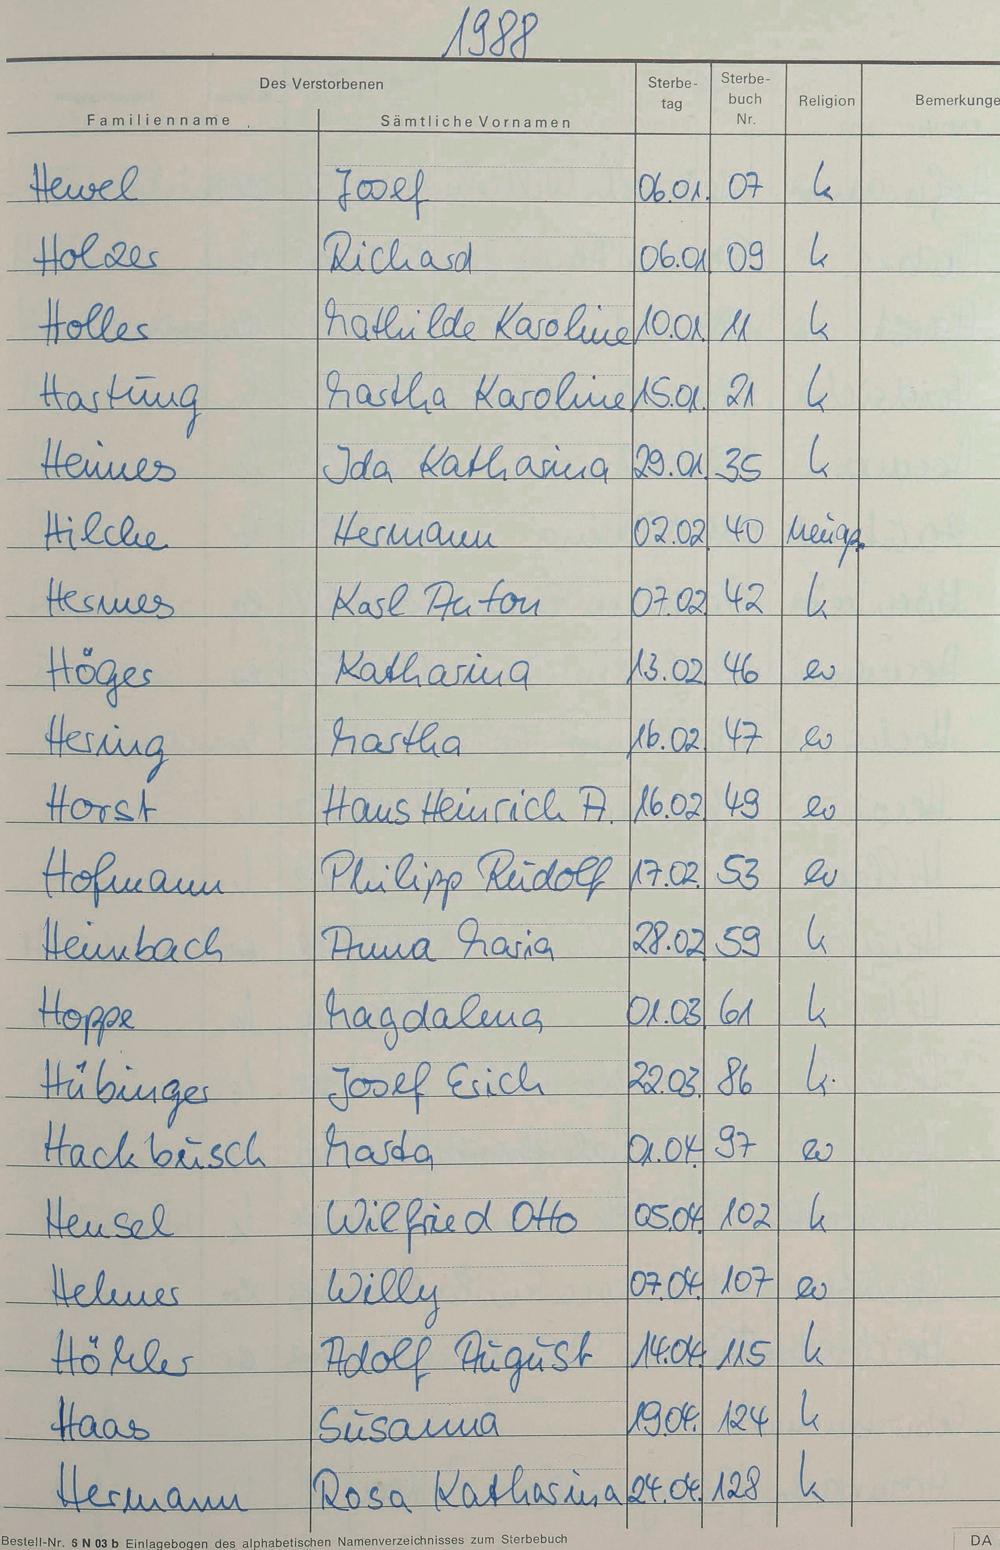 1988
Des Verstorbenen Sterbe- Sterbe-
tag buch Religion Bemerkunge
Familienname Sämtliche Vornamen Nr.
Hewel Josef 06.01. 07 k
Holzer Richard 06.01 09 k
Holler Mathilde Karoline 10.01. 11 k
Hartung Martha Karoline 15.01. 21 k
Heimes Ida Katharina 29.01. 35 k
Hilche Hermann 02.02 40 neuap.
Hermes Karl Anton 07.02 42 k
Höger Katharina 13.02 46 ev
Hering Martha 16.02 47 ev
Horst Hans Heinrich A. 16.02 49 ev
Hofmann Philipp Rudolf 17.02. 53 ev
Heimbach Anna Maria 28.02 59 k
Hoppe Magdalena 01.03 61 k
Hübinger Josef Erich 22.03. 86 k.
Hackbusch Marta 01.04. 97 ev
Hensel Wilfried Otto 05.04 102 k
Helmer Willy 07.04. 107 ev
Höhler Adolf August 14.04 115 k
Haas Susanna 19.04. 124 k
Hermann Rosa Katharina 24.04. 128 k
Bestell-Nr. 5 N 03 b Einlagebogen des alphabetischen Namenverzeichnisses zum Sterbebuch DA